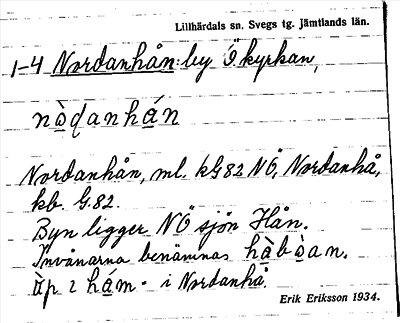 Lillhärdals sn. Svegs tg. Jämtlands län.
1-4 Nordanhån: by Ö kyrkan,
nòdanhán
Nordanhån, ml. kG82 NÖ, Nordanhå,
kb. G.82.
Byn ligger NÖ sjön Hån.
Invånarna benämnas hàbòan.
ùp i hám - i Nordanhå.
Erik Eriksson 1934.